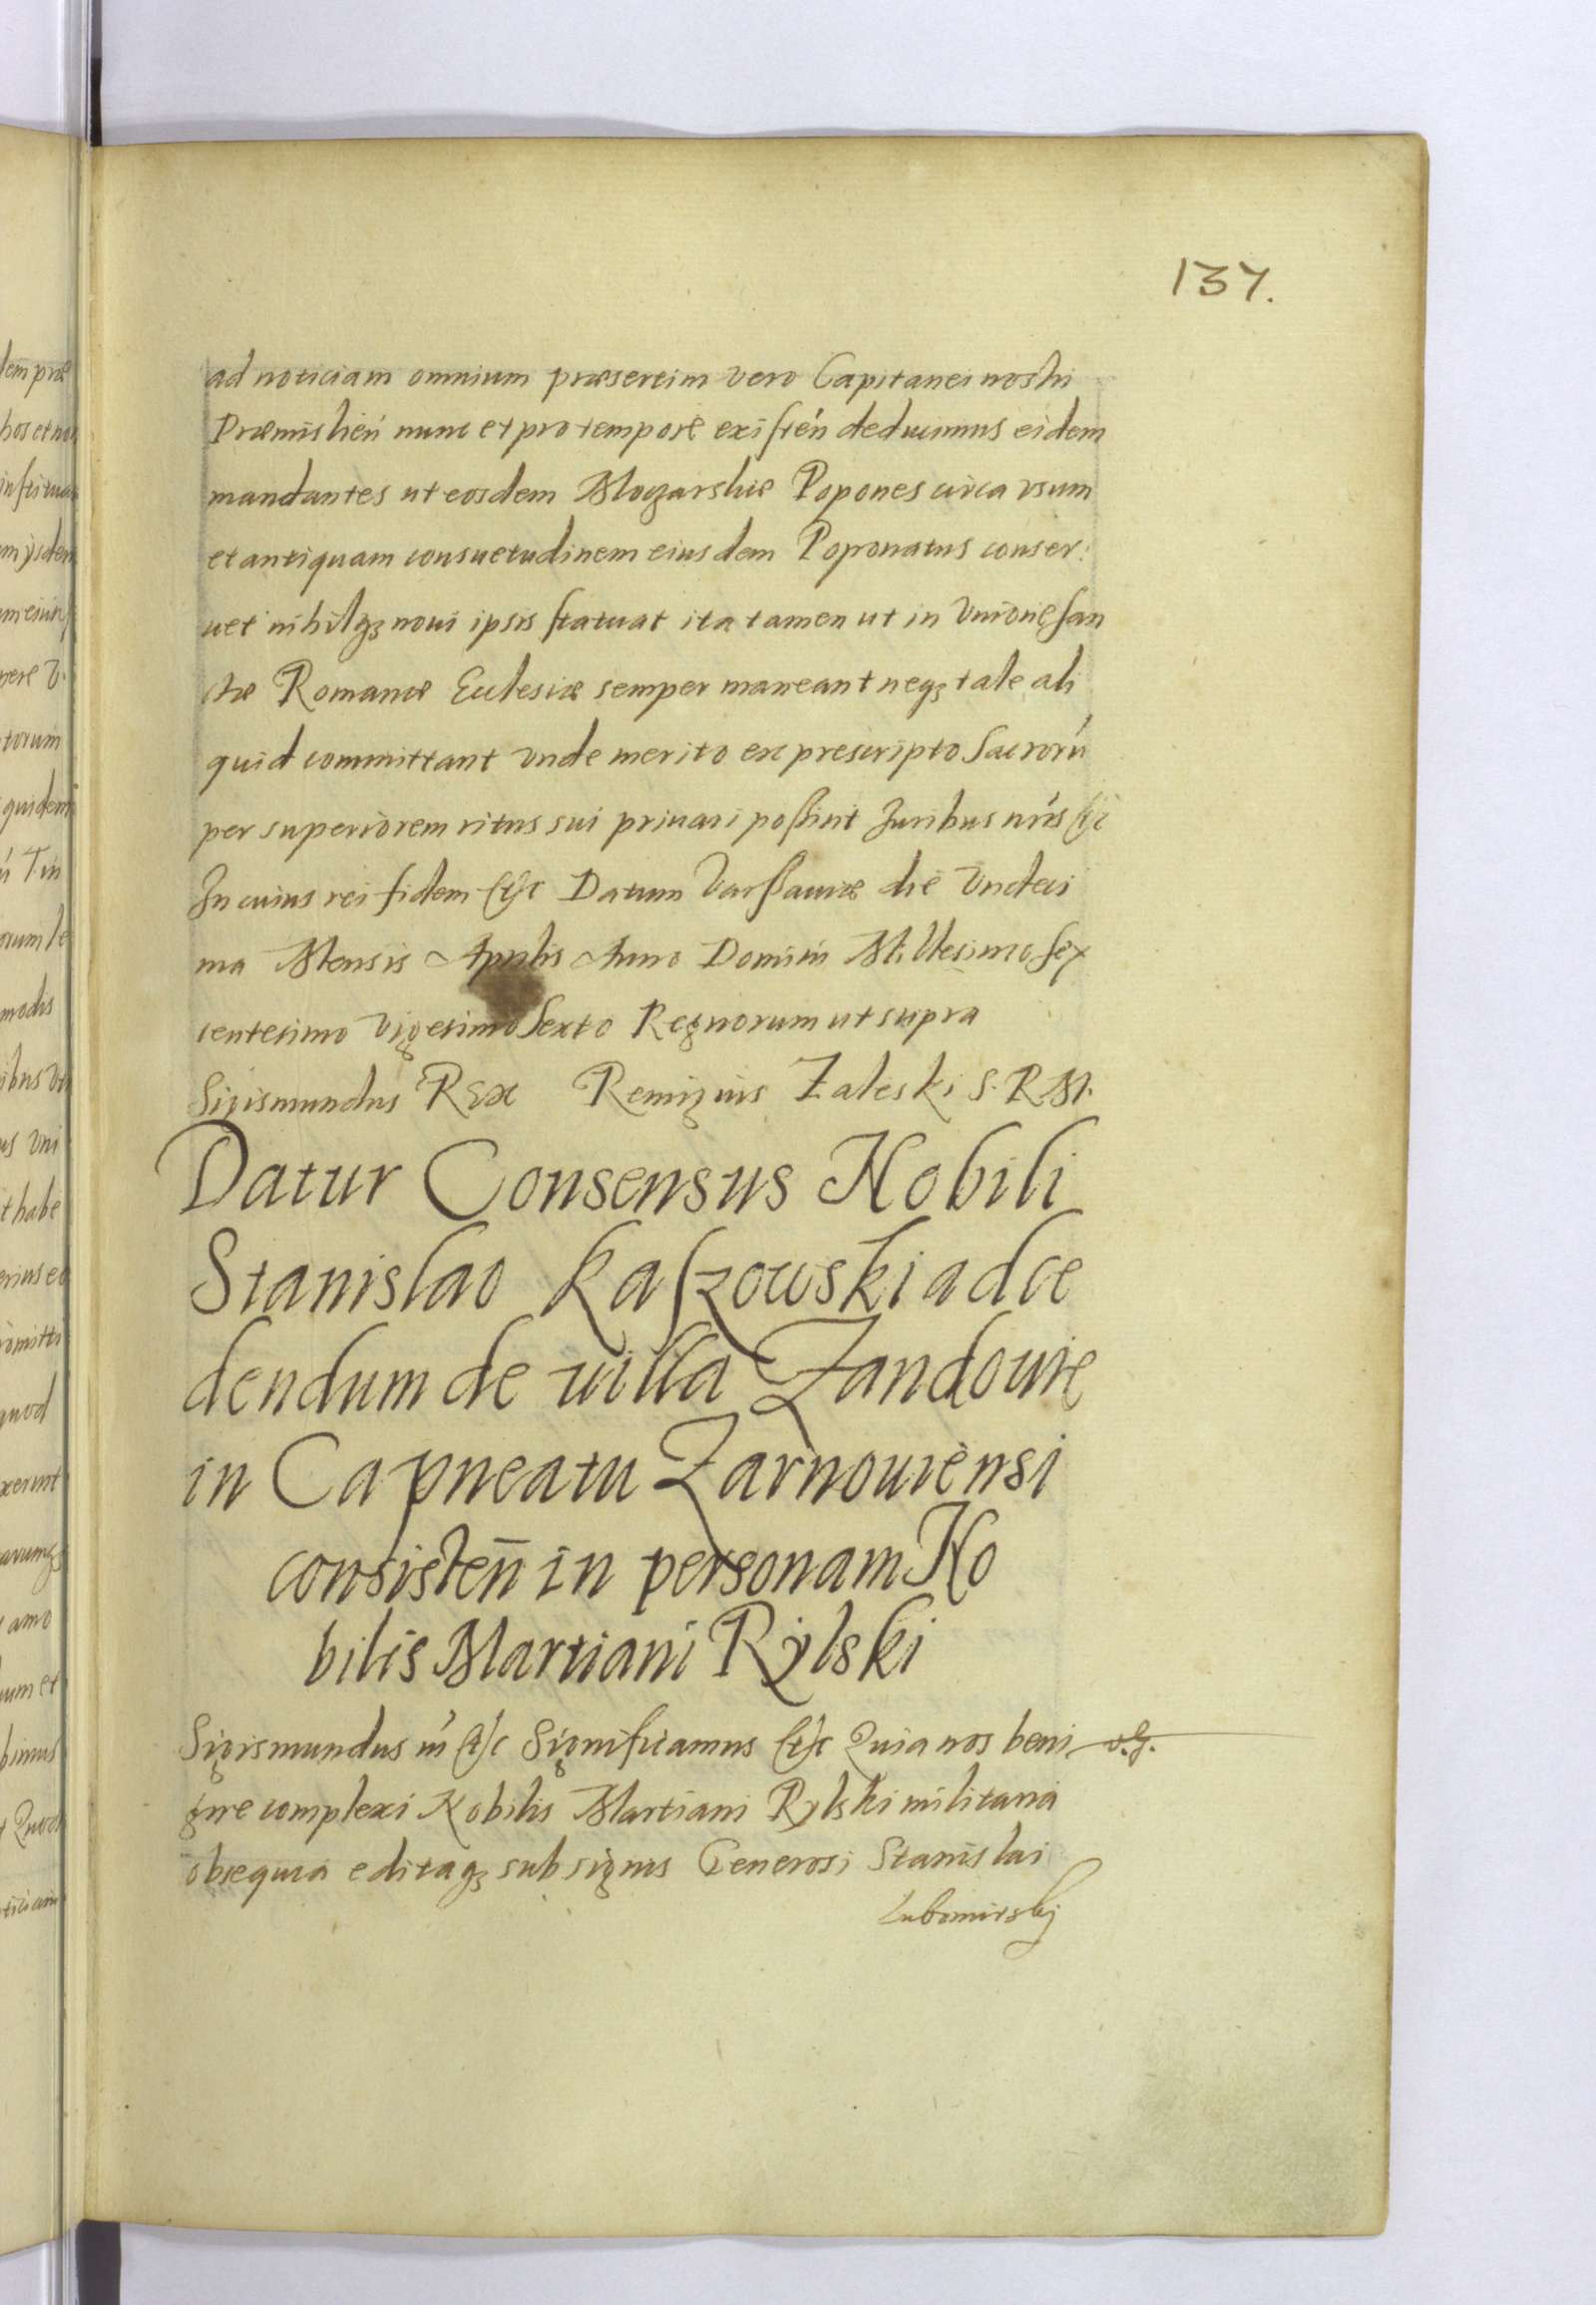 137.
ad noticiam omnium præsertim vero Capitanei nostri
Præmislień nunc et pro tempore existeń deducimus eidem
mandantes ut eosdem Mogarskie Popones circa vsum
et antiquam consuetudinem eiusdem Poponatus conser:
uet nihilqꝫ noui ipsis statuat ita tamen ut in Vnione San
ctæ Romanæ Ecclesiæ semper maneant neqꝫ tale ali
quid committant vnde merito ex prescripto Sacrorú
per superiorem ritus sui priuari poßint Juribus nŕis &c
In cuius rei fidem &c Datum Varßauiæ die Vndeci
ma Mensis Aprilis Anno Domini Millesimo Sex
centesimo Vigesimo Sexto Regnorum ut supra
Sigismundus REX Remigius Zaleski S. R. M.
Datur Consensus Nobili
Stanislao Kaſzowski ad ce
dendum de uilla Zandowie
in Capneatu Zarnouiensi
consisteń in personam No
bilis Martiani Rylski
Sigismundus ııı &c Significamus &c Quia nos beni
gne complexi Nobilis Martiani Rylski militaria
obsequia editaqꝫ sub signis Generosi Stanislai
Lubomirskj